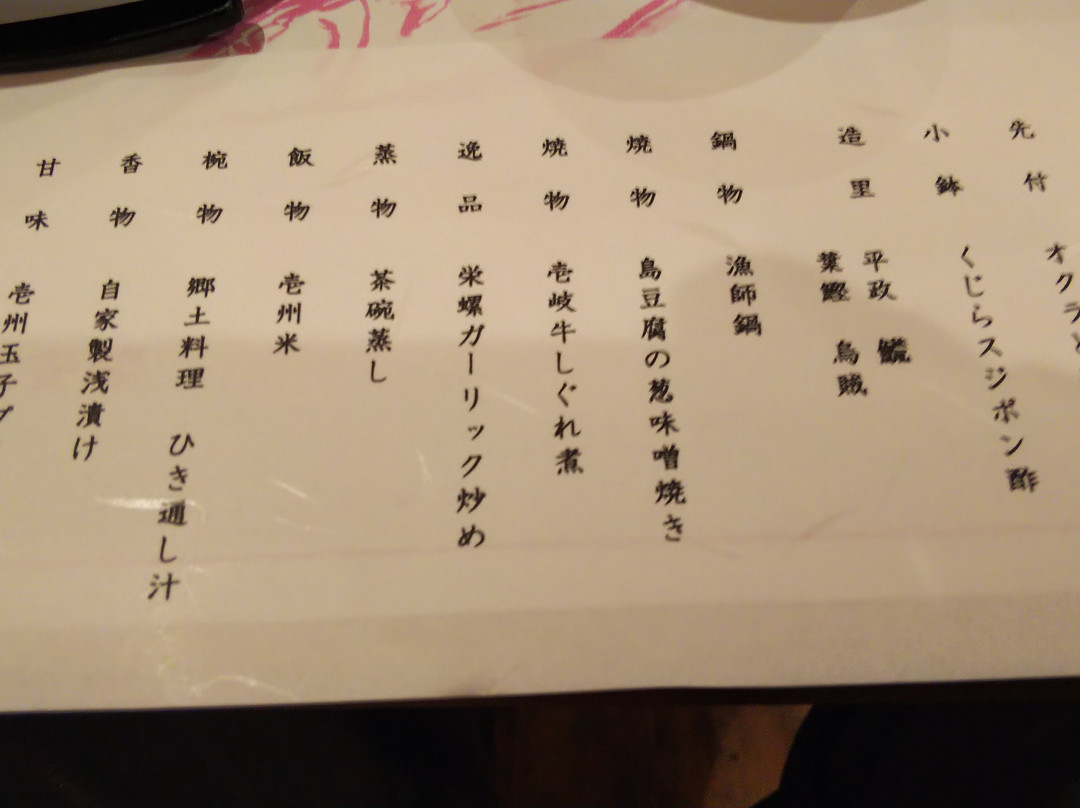 先付 オクラと
小鉢 くじらスジポン酢
造里 平政
葉鰹 烏賊
鍋物 漁師鍋
焼物 島豆腐の葱味噌焼き
焼物 壱岐牛しぐれ煮
逸品 栄螺ガーリック炒め
蒸物 茶碗蒸し
飯物 壱州米
椀物 郷土料理 ひき通し汁
香物 自家製浅漬け
甘味 壱州玉子プ